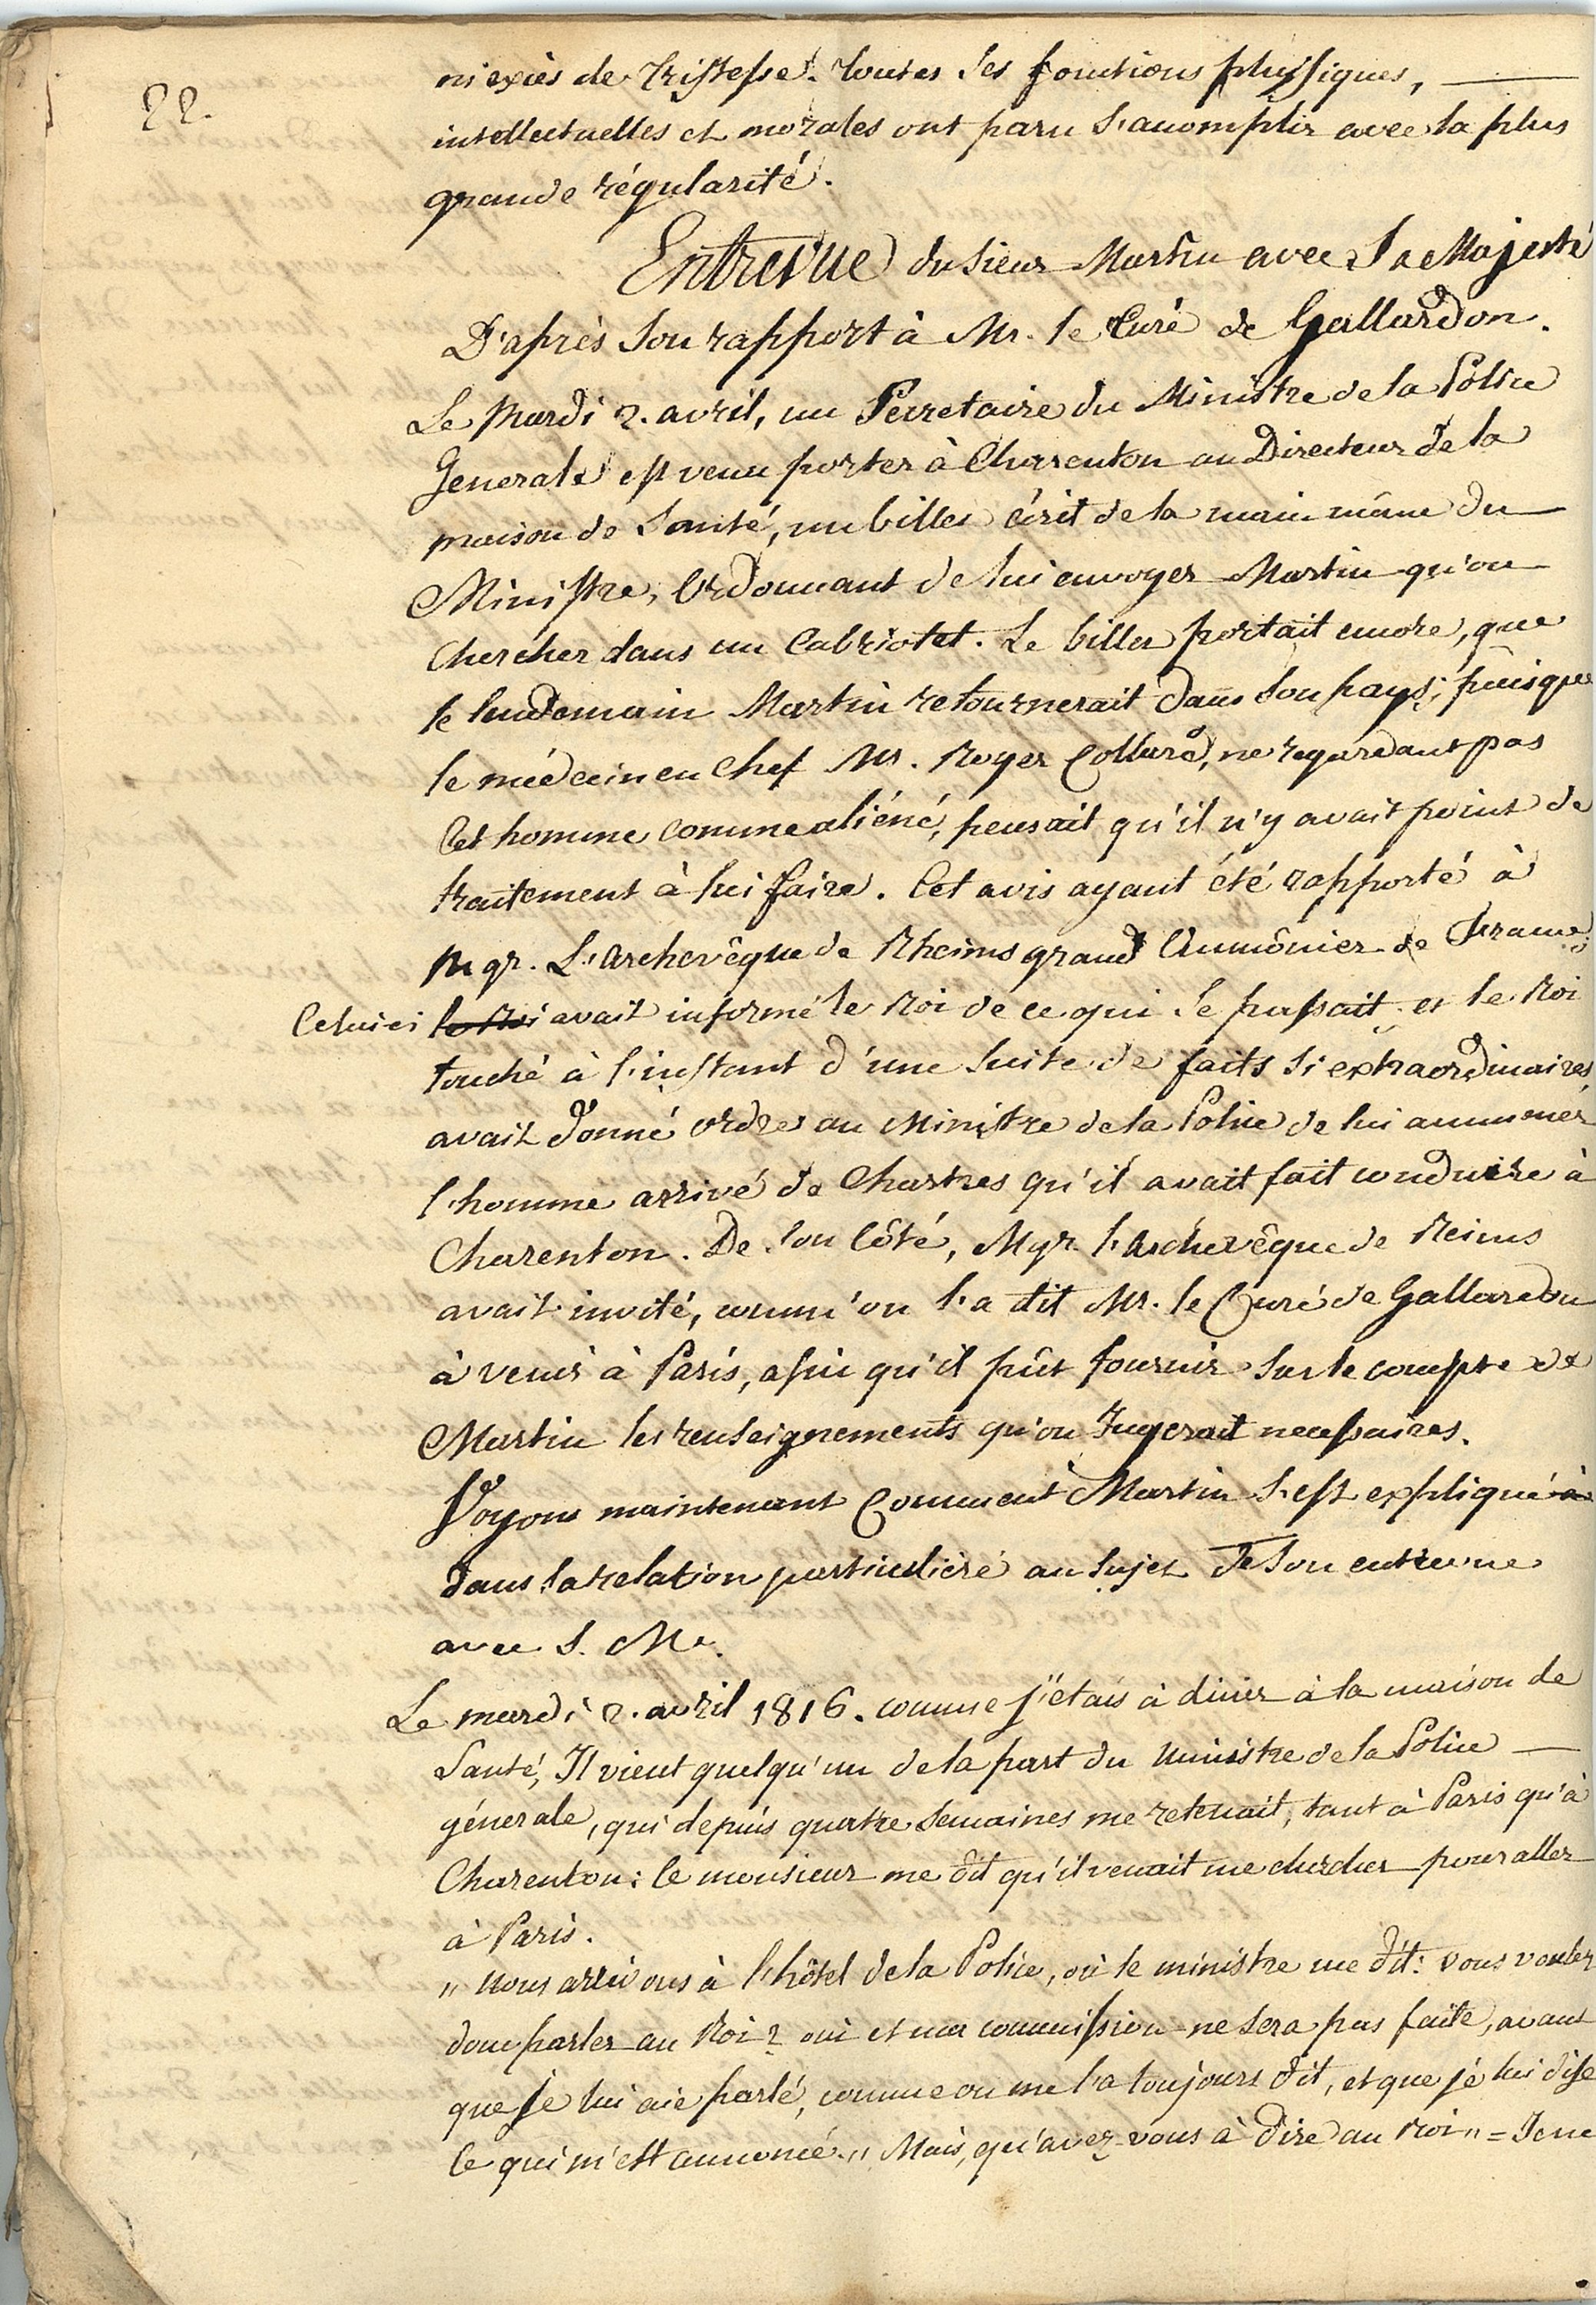 22.
ni excès de tristesse. toutes ses fonctions physiques,
intellectuelles et morales ont paru s'accomplir avec la plus
grande régularité.
Entrevue du sieur Martin avec Sa Majesté
D'après son rapport à Mr. le Curé de Gallardon.
Le Mardi 2. avril, un Secretaire du Ministre de la Police
Generale est venu porter à Charenton au Directeur de la
maison de Santé, un billet écrit de la main même du
Ministre, Ordonnant de lui envoyer Martin qu'on
Chercher dans un Cabriolet. Le billet portait encore, que
le lendemain Martin retournerait dans son pays; puisque
le médecin en Chef Mr. Royer Collard, ne regardant pas
Cet homme comme aliéné, pensait qu'il n'y avait point de
traitement à lui faire. Cet avis ayant été rapporté à
Mgr. L'Archevêque de Rheims grand Aumônier de France,
Celuici le Roi avait informé le Roi de ce qui se passait, et le Roi
touché à l'instant d'une suite de faits si extraordinaires,
avait donné ordre au Ministre de la Police de lui ammener
l'homme arrivé de Chartres qu'il avait fait conduire à
Charenton. De son Côté, Mgr. l'Archevêque de Reims
avait invité, comm'on l'a dit Mr. le Curé de Gallardon
à venir à Paris, afin qu'il pût fournir sur le compte de
Martin les renseignements qu'on Jugerait necessaires.
Voyons maintenant Comment Martin s'est expliqué à
dans la relation particulière au sujet de son entrevue
avec S. M.
Le mardi 2. avril 1816. comme j'étais à diner à la maison de
Santé, Il vient quelqu'un de la part du Ministre de la Police
génerale, qui depuis quatre semaines me retenait, tant à Paris qu'à
Charenton: le monsieur me dit qu'il venait me chercher pour aller
à Paris.
" Nous arrivons à l'hôtel de la Police, où le ministre me dit: vous voulez
donc parler au Roi? oui et ma commission ne sera pas faite, avant
que je lui aie parlé, comme on me l'a toujours dit, et que je lui dise
Ce qui m'est annoncé." Mais, qu'avez-vous à dire au Roi" = Je ne